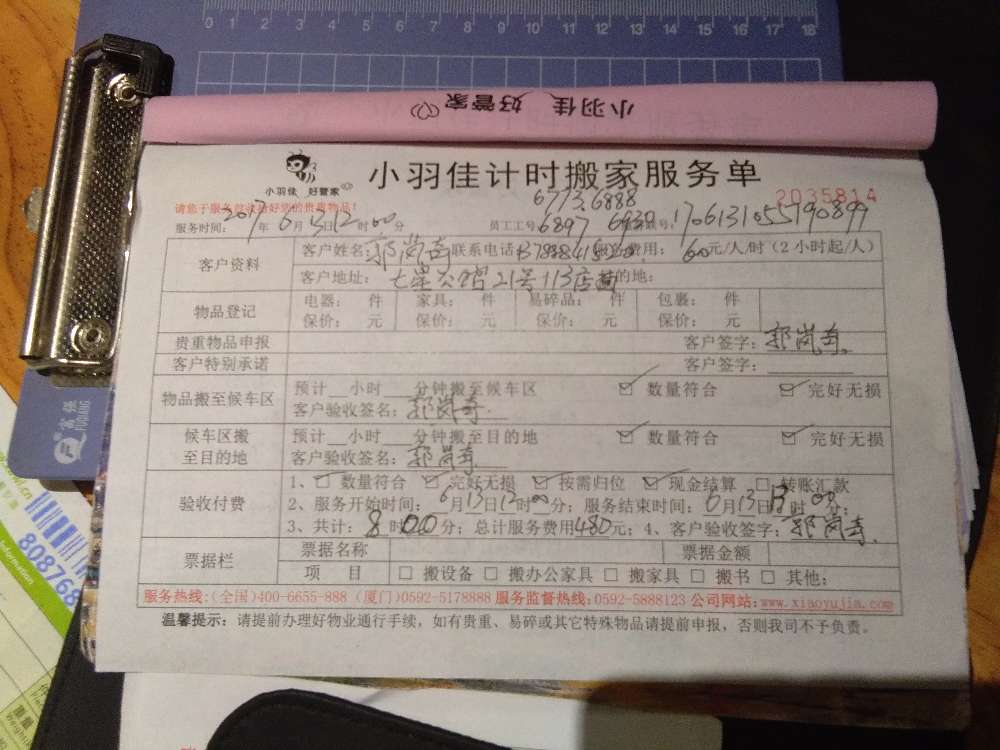 0 1 2 3 4 5 6 7 8 9 10 11 12 13 14 15 16 17 18
小羽佳 好管家
小羽佳 好管家
小羽佳计时搬家服务单
2035814
请您于服务前收拾好您的贵重物品!
6773.6888
服务时间: 2017年6月13日12时00分 员工工号:6897 6930 1706131055190899
客户资料 客户姓名:郭岚奇 联系电话: 费用: 60元/人/时(2小时起/人)
客户地址: 七星公馆21号113店 目的地:
物品登记 电器: 件 家具: 件 易碎品: 件 包裹: 件
保价: 元 保价: 元 保价: 元 保价: 元
贵重物品申报 客户签字:郭岚奇
客户特别承诺 客户签字:
物品搬至候车区 预计__小时___分钟搬至候车区 ☑ 数量符合 ☑ 完好无损
客户验收签名:郭岚奇
候车区搬至目的地 预计__小时___分钟搬至目的地 ☑ 数量符合 ☑ 完好无损
客户验收签名:郭岚奇
验收付费 1、☑数量符合 ☑完好无损 ☑按需归位 ☑现金结算 □转账汇款
2、服务开始时间:6月13日12时00分;服务结束时间:6月13日 时00分;
3、共计:8时00分;总计服务费用480元;4、客户验收签字:郭岚奇
票据栏 票据名称 票据金额
项 目 □ 搬设备 □ 搬办公家具 □ 搬家具 □ 搬书 □ 其他:
服务热线:(全国)400-6655-888 (厦门)0592-5178888 服务监督热线:0592-5888123 公司网站:www.xiaoyujia.com
温馨提示:请提前办理好物业通行手续,如有贵重、易碎或其它特殊物品请提前申报,否则我司不予负责。
富强
FUQIANG
808768
Information